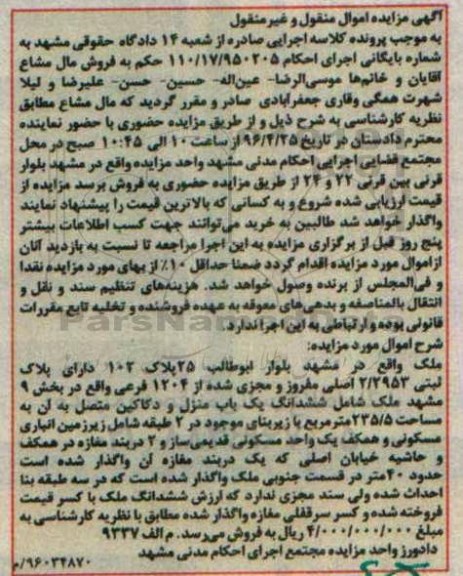 آگهی مزایده اموال منقول و غیرمنقول
به موجب پرونده کلاسه اجرایی صادره از شعبه ۱۴ دادگاه حقوقی مشهد به
شماره بایگانی اجرای احکام ۱۱۰/۱۷/۹۵۰۲۰۵ حکم به فروش مال مشاع
آقایان و خانم‌ها موسی‌الرضا- عین‌اله- حسین- حسن- علیرضا و لیلا
شهرت همگی وقاری جعفرآبادی صادر و مقرر گردید که مال مشاع مطابق
نظریه کارشناسی به شرح ذیل و از طریق مزایده حضوری با حضور نماینده
محترم دادستان در تاریخ ۹۶/۴/۲۵ از ساعت ۱۰ الی ۱۰:۴۵ صبح در محل
مجتمع قضایی اجرای احکام مدنی مشهد واحد مزایده واقع در مشهد بلوار
قرنی بین قرنی ۲۲ و ۲۴ از طریق مزایده حضوری به فروش برسد مزایده از
قیمت ارزیابی شده شروع و به کسانی که بالاترین قیمت را پیشنهاد نمایند
واگذار خواهد شد طالبین به خرید می‌توانند جهت کسب اطلاعات بیشتر
پنج روز قبل از برگزاری مزایده به این اجرا مراجعه تا نسبت به بازدید آنان
از اموال مورد مزایده اقدام گردد ضمنا حداقل ۱۰٪ از بهای مورد مزایده نقدا
و فی‌المجلس از برنده وصول خواهد شد. هزینه‌های تنظیم سند و نقل و
انتقال بالمناصفه و بدهی‌های معوقه به عهده فروشنده و تخلیه تابع مقررات
قانونی بوده و ارتباطی به این اجرا ندارد.
شرح اموال مورد مزایده:
ملک واقع در مشهد بلوار ابوطالب ۲۵ پلاک ۱۰۲ دارای پلاک
ثبتی ۲/۲۹۵۳ اصلی مفروز و مجزی شده از ۱۲۰۴ فرعی واقع در بخش ۹
مشهد ملک شامل ششدانگ یک باب منزل و دکاکین متصل به آن به
مساحت ۲۳۵/۵ مترمربع با زیربنای موجود در ۲ طبقه شامل زیرزمین انباری
مسکونی و همکف یک واحد مسکونی قدیمی‌ساز و ۲ دربند مغازه در همکف
و حاشیه خیابان اصلی که یک دربند مغازه آن واگذار شده است
حدود ۴۰متر در قسمت جنوبی ملک واگذار شده است که در سه طبقه بنا
احداث شده ولی سند مجزی ندارد که ارزش ششدانگ ملک با کسر قیمت
فروخته شده و کسر سرقفلی مغازه واگذار شده مطابق با نظریه کارشناسی به
مبلغ ۴/۰۰۰/۰۰۰/۰۰۰ ریال به فروش می‌رسد. م الف ۹۳۳۷
دادورز واحد مزایده مجتمع اجرای احکام مدنی مشهد
۹۶۰۳۴۸۷۰/م